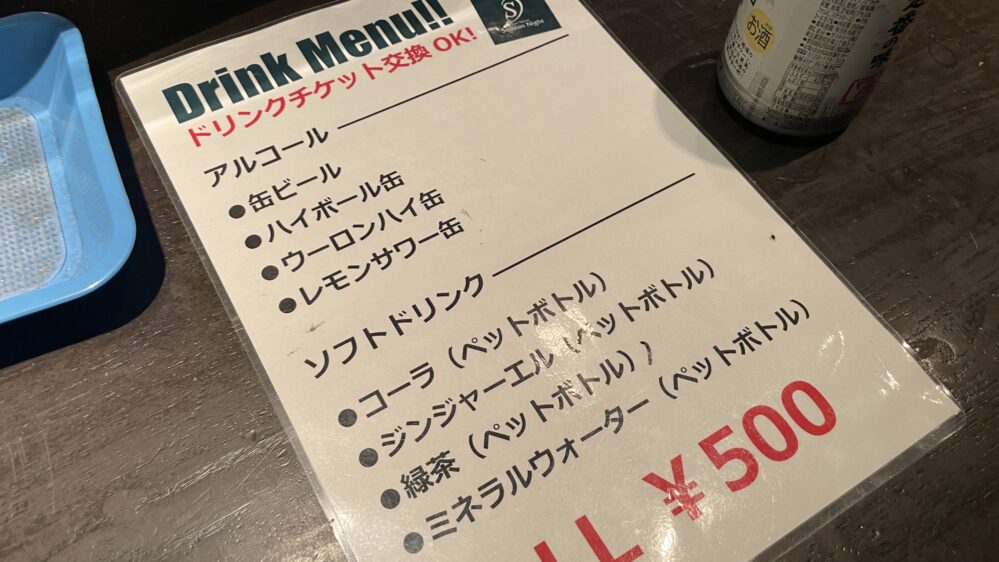 Drink Menu!!
ドリンクチケット交換 OK!
S
Night
アルコール
●缶ビール
●ハイボール缶
●ウーロンハイ缶
●レモンサワー缶
ソフトドリンク
●コーラ（ペットボトル）
●ジンジャーエル（ペットボトル）
●緑茶（ペットボトル））
●ミネラルウォーター（ペットボトル）
¥500
お酒
の味